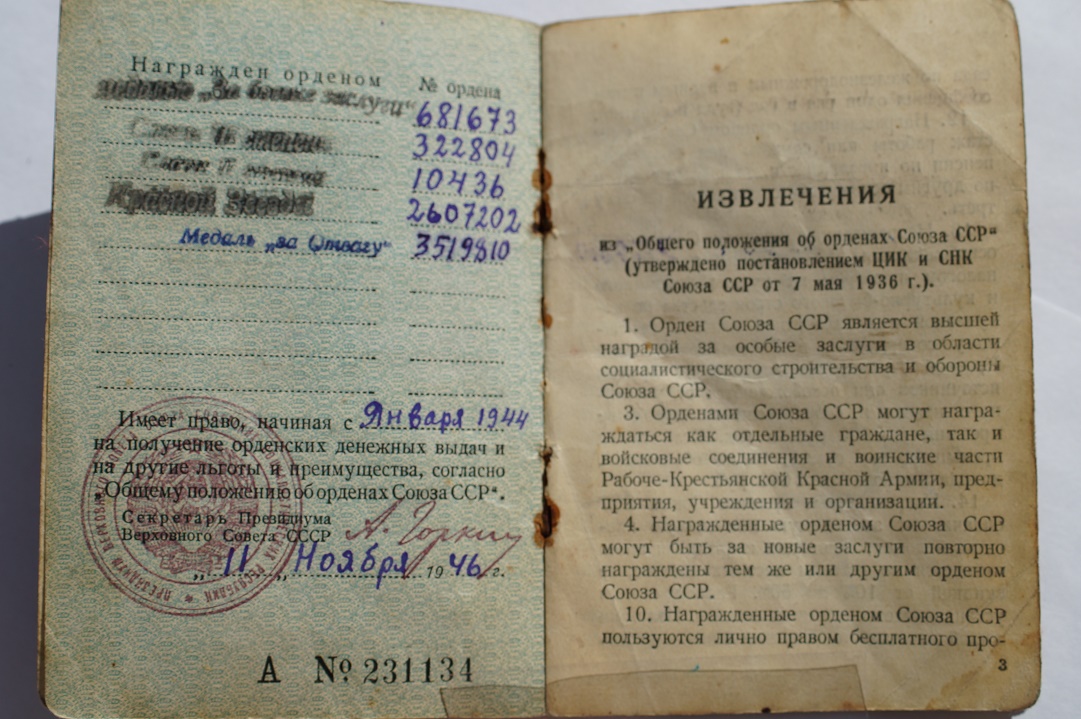 Награжден орденом № ордена
медаль „За боевые заслуги“ 681673
Славы III степени 322804
Славы II степени 10436
Красной Звезды 2607202
Медаль „за Отвагу“ 3519810
Имеет право, начиная с Января 1944
на получение орденских денежных выдач и
на другие льготы и преимущества, согласно
„Общему положению об орденах Союза ССР“.
Секретарь Президиума
Верховного Совета СССР А. Горкин
„ 11 „ Ноября 1946 г.
А № 231134
ИЗВЛЕЧЕНИЯ
из „Общего положения об орденах Союза ССР“
(утверждено постановлением ЦИК и СНК
Союза ССР от 7 мая 1936 г.).
1. Орден Союза ССР является высшей
наградой за особые заслуги в области
социалистического строительства и обороны
Союза ССР.
3. Орденами Союза ССР могут награ-
ждаться как отдельные граждане, так и
войсковые соединения и воинские части
Рабоче-Крестьянской Красной Армии, пред-
приятия, учреждения и организации.
4. Награжденные орденом Союза ССР
могут быть за новые заслуги повторно
награждены тем же или другим орденом
Союза ССР.
10. Награжденные орденом Союза ССР
пользуются лично правом бесплатного про-
3